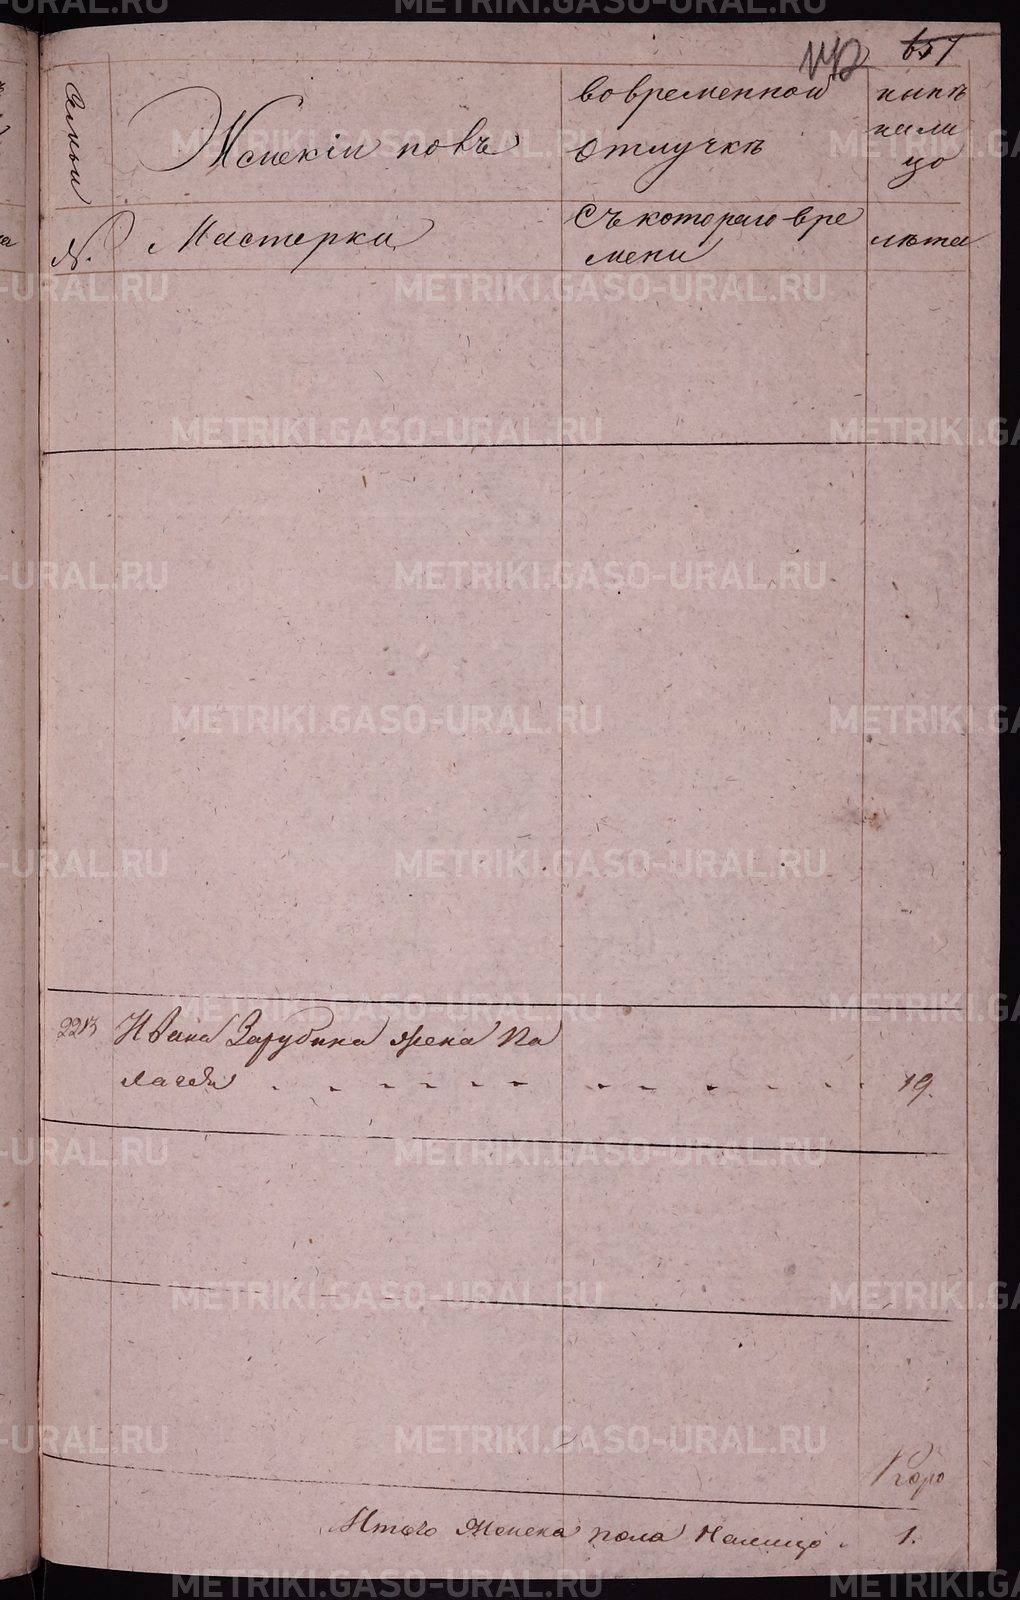 651
Семьи
Женскій полъ
во временной
отлучкѣ
нынѣ
на ли
цо
№.
Мастерки
Съ котораго вре
мени
лѣта
2213 Ивана Зарубина жена Па
лагея
19.
Итого женска пола налицо
1.
METRIKI.GASO-URAL.RU